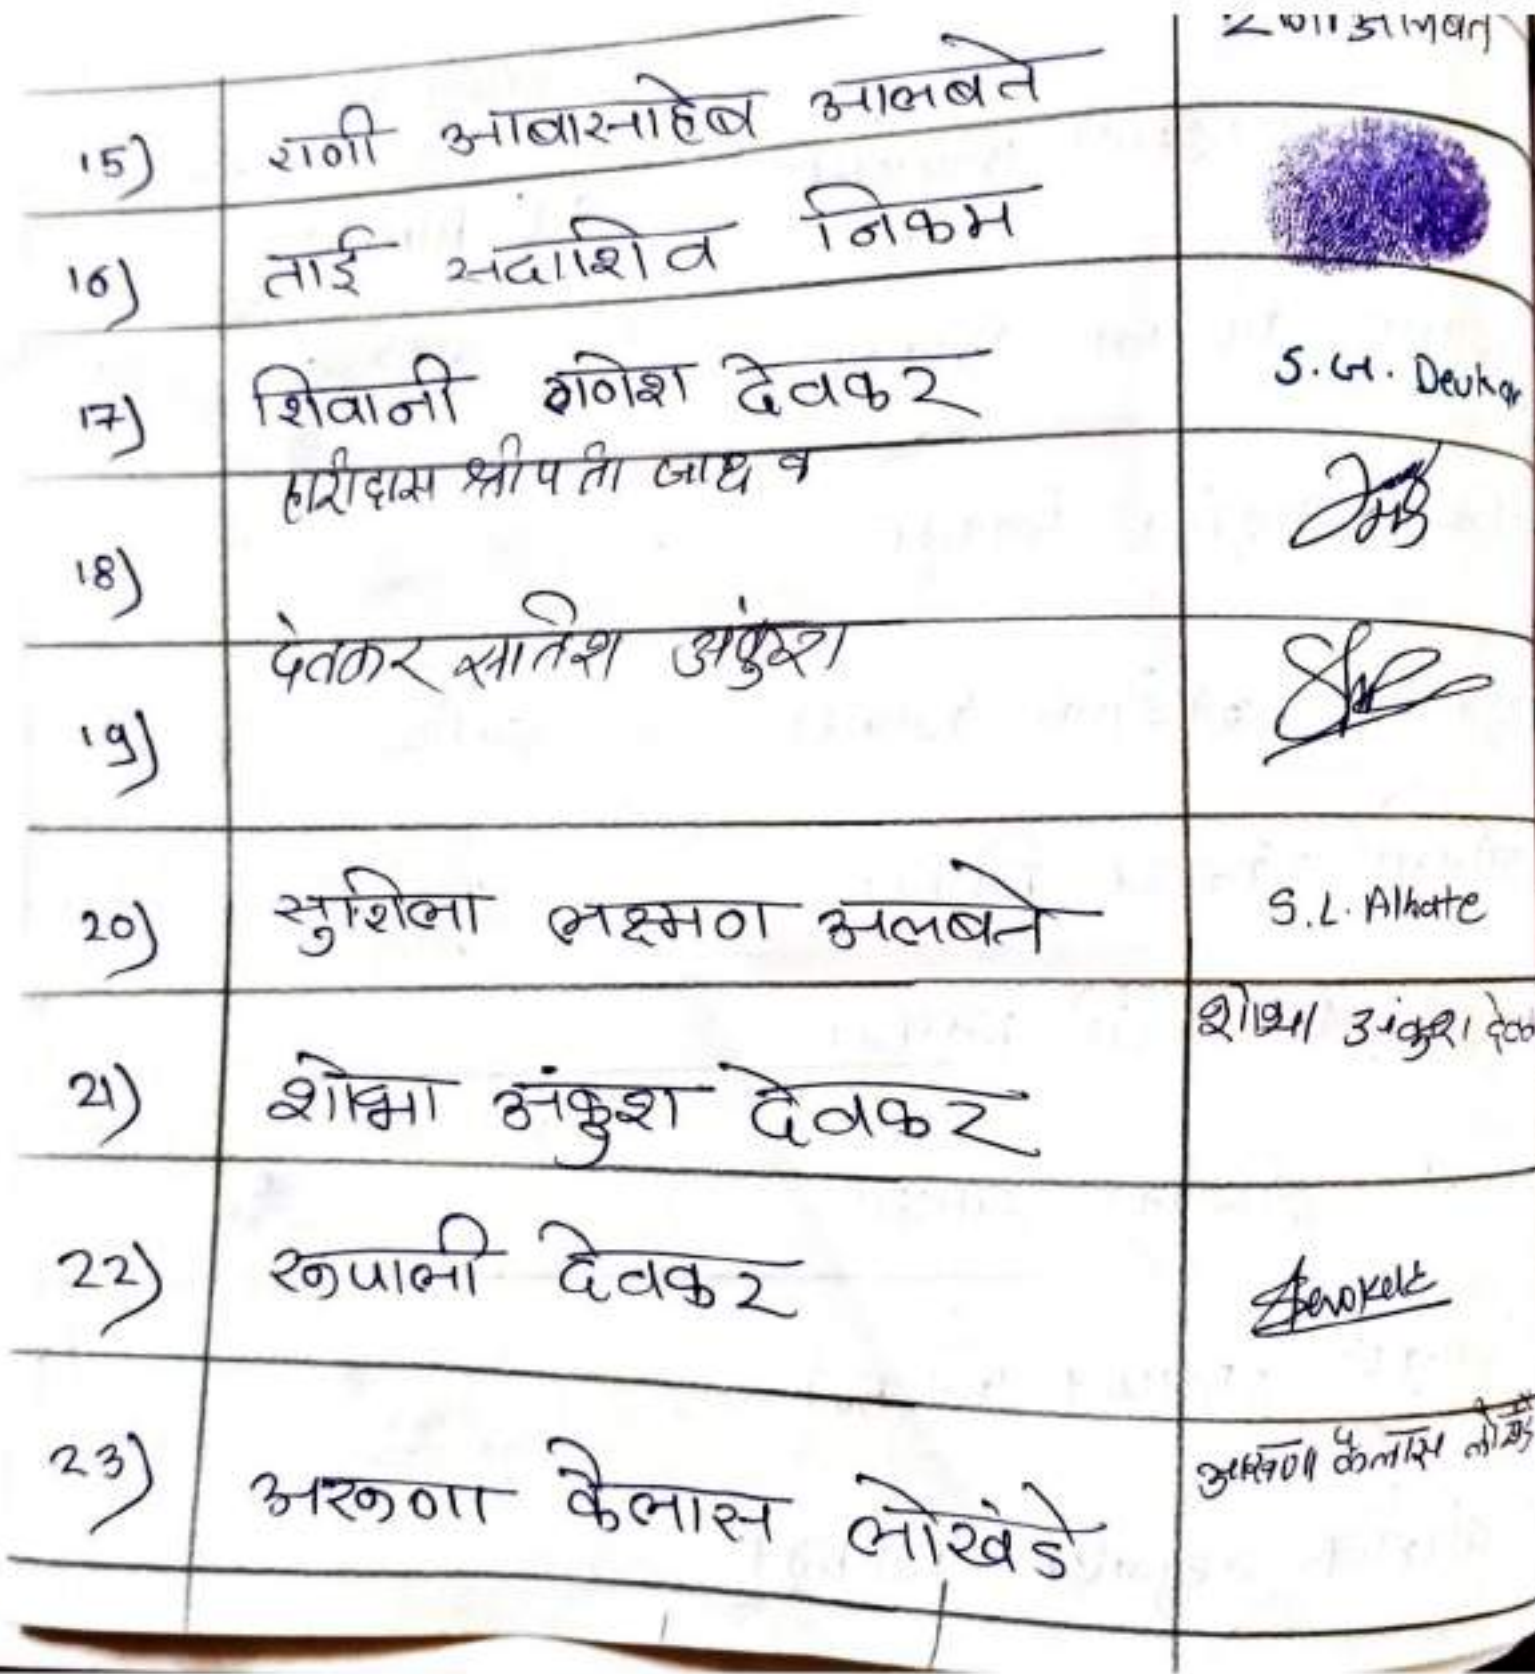 15) राणी आबासाहेब आलबते
16) ताई सदाशिव निकम
17) शिवानी गणेश देवकर S.G. Devkar
18) हारीदास श्रीपती जाधव
19) देवकर सातिश अंकुश
20) सुशिला लक्ष्मण अलबते S.L. Albate
21) शोभा अंकुश देवकर शोभा अंकुश
22) रूपाली देवकर
23) अरूणा कैलास लोखंडे अरूणा कैलास